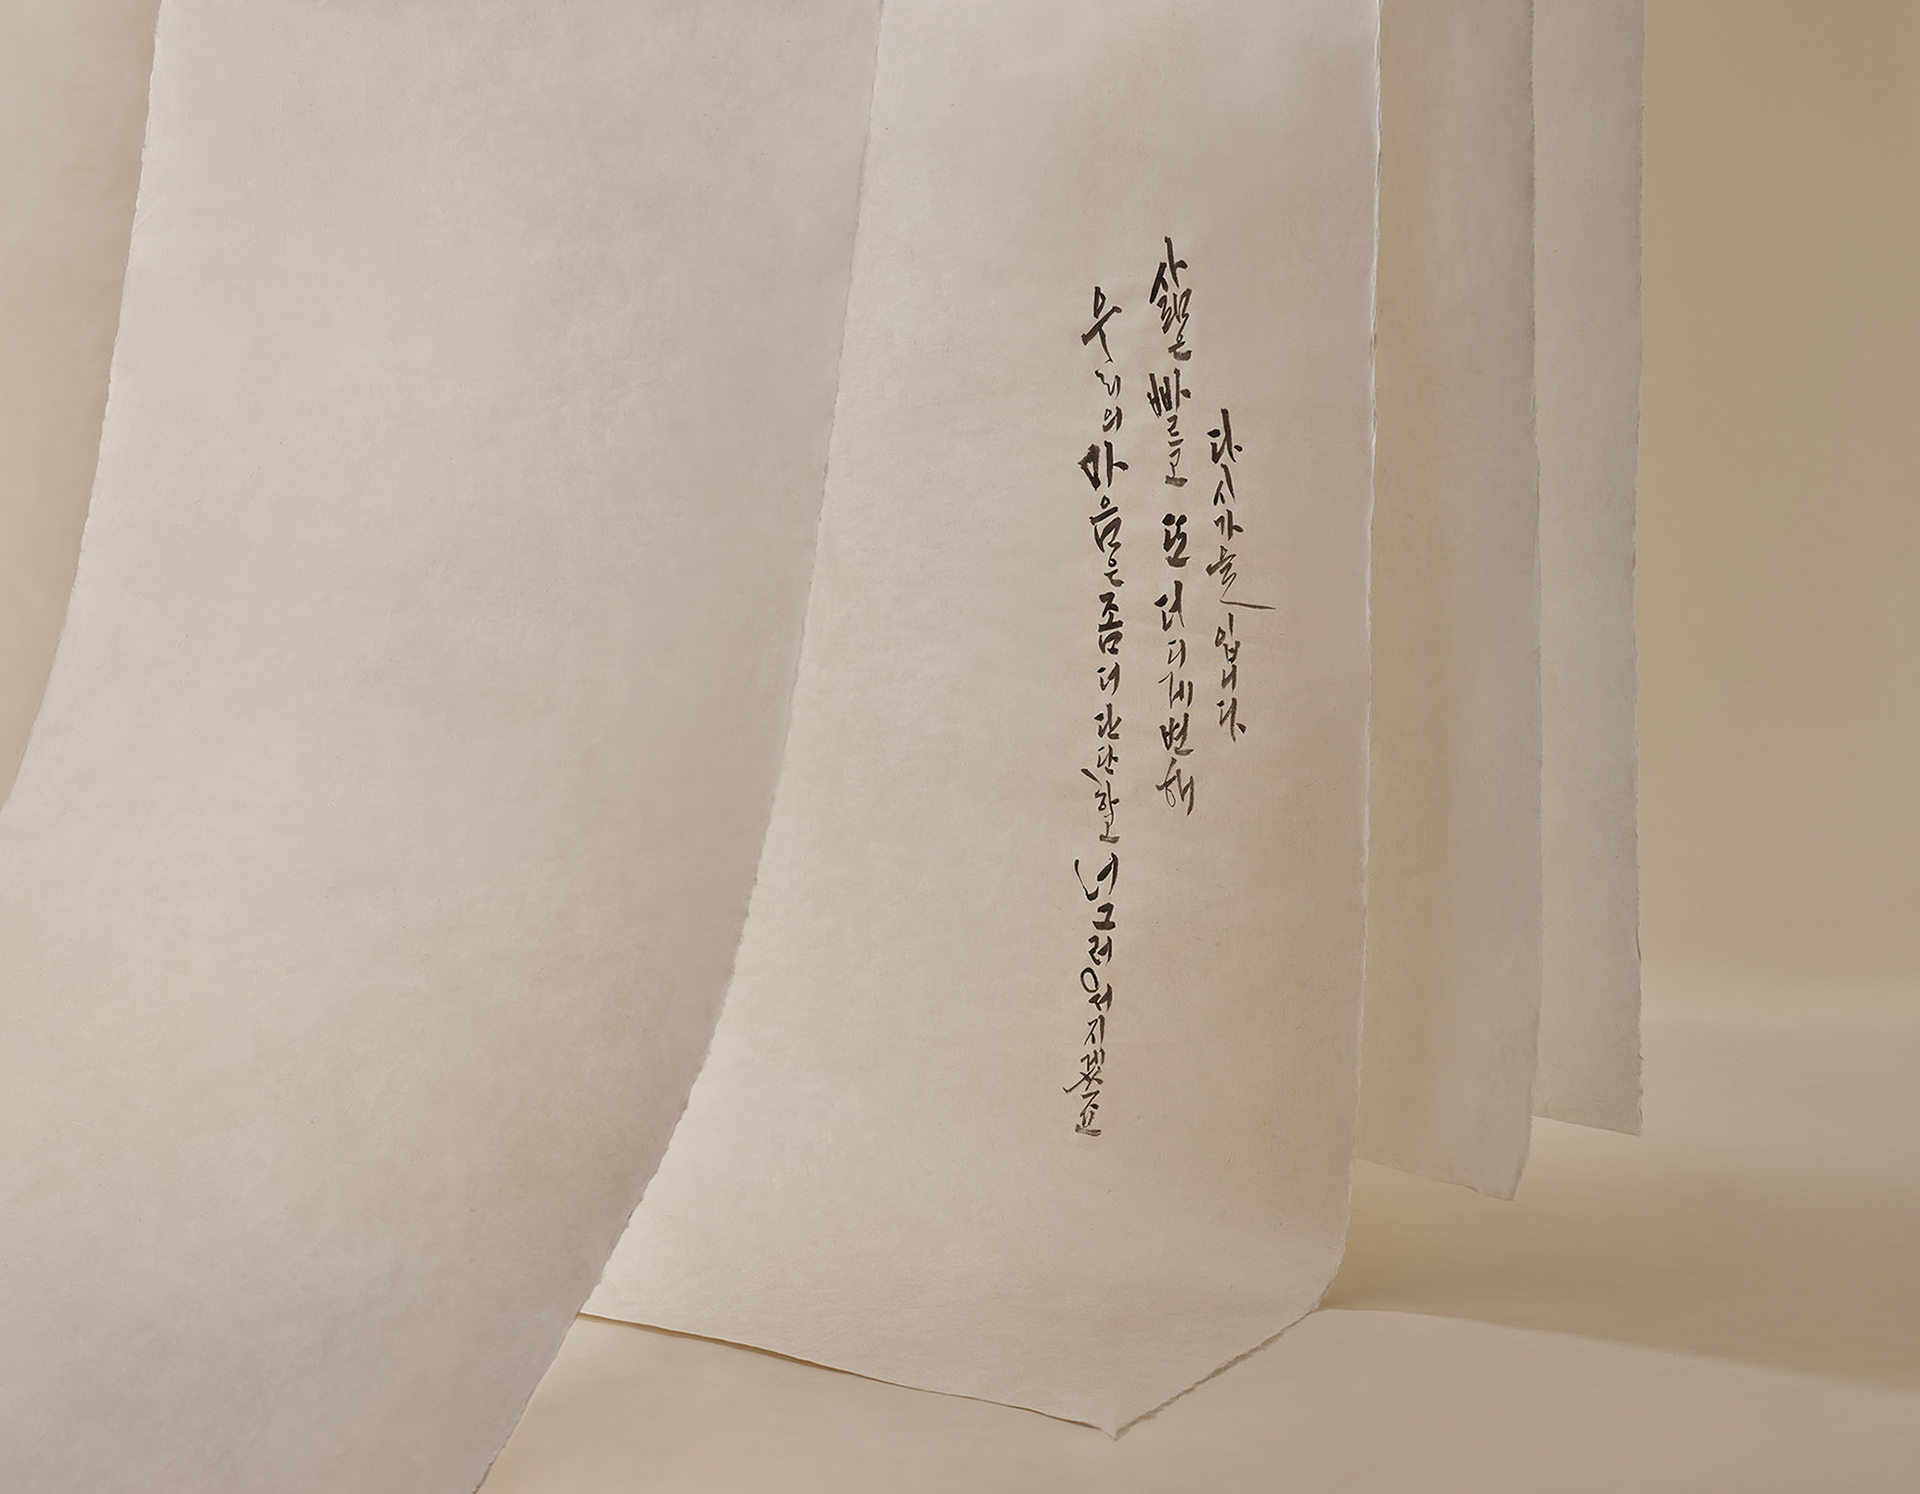 다시 가을입니다
삶은 빠르고 또 더디게 변해
우리의 마음은 좀 더 단단하고 너그러워지겠죠